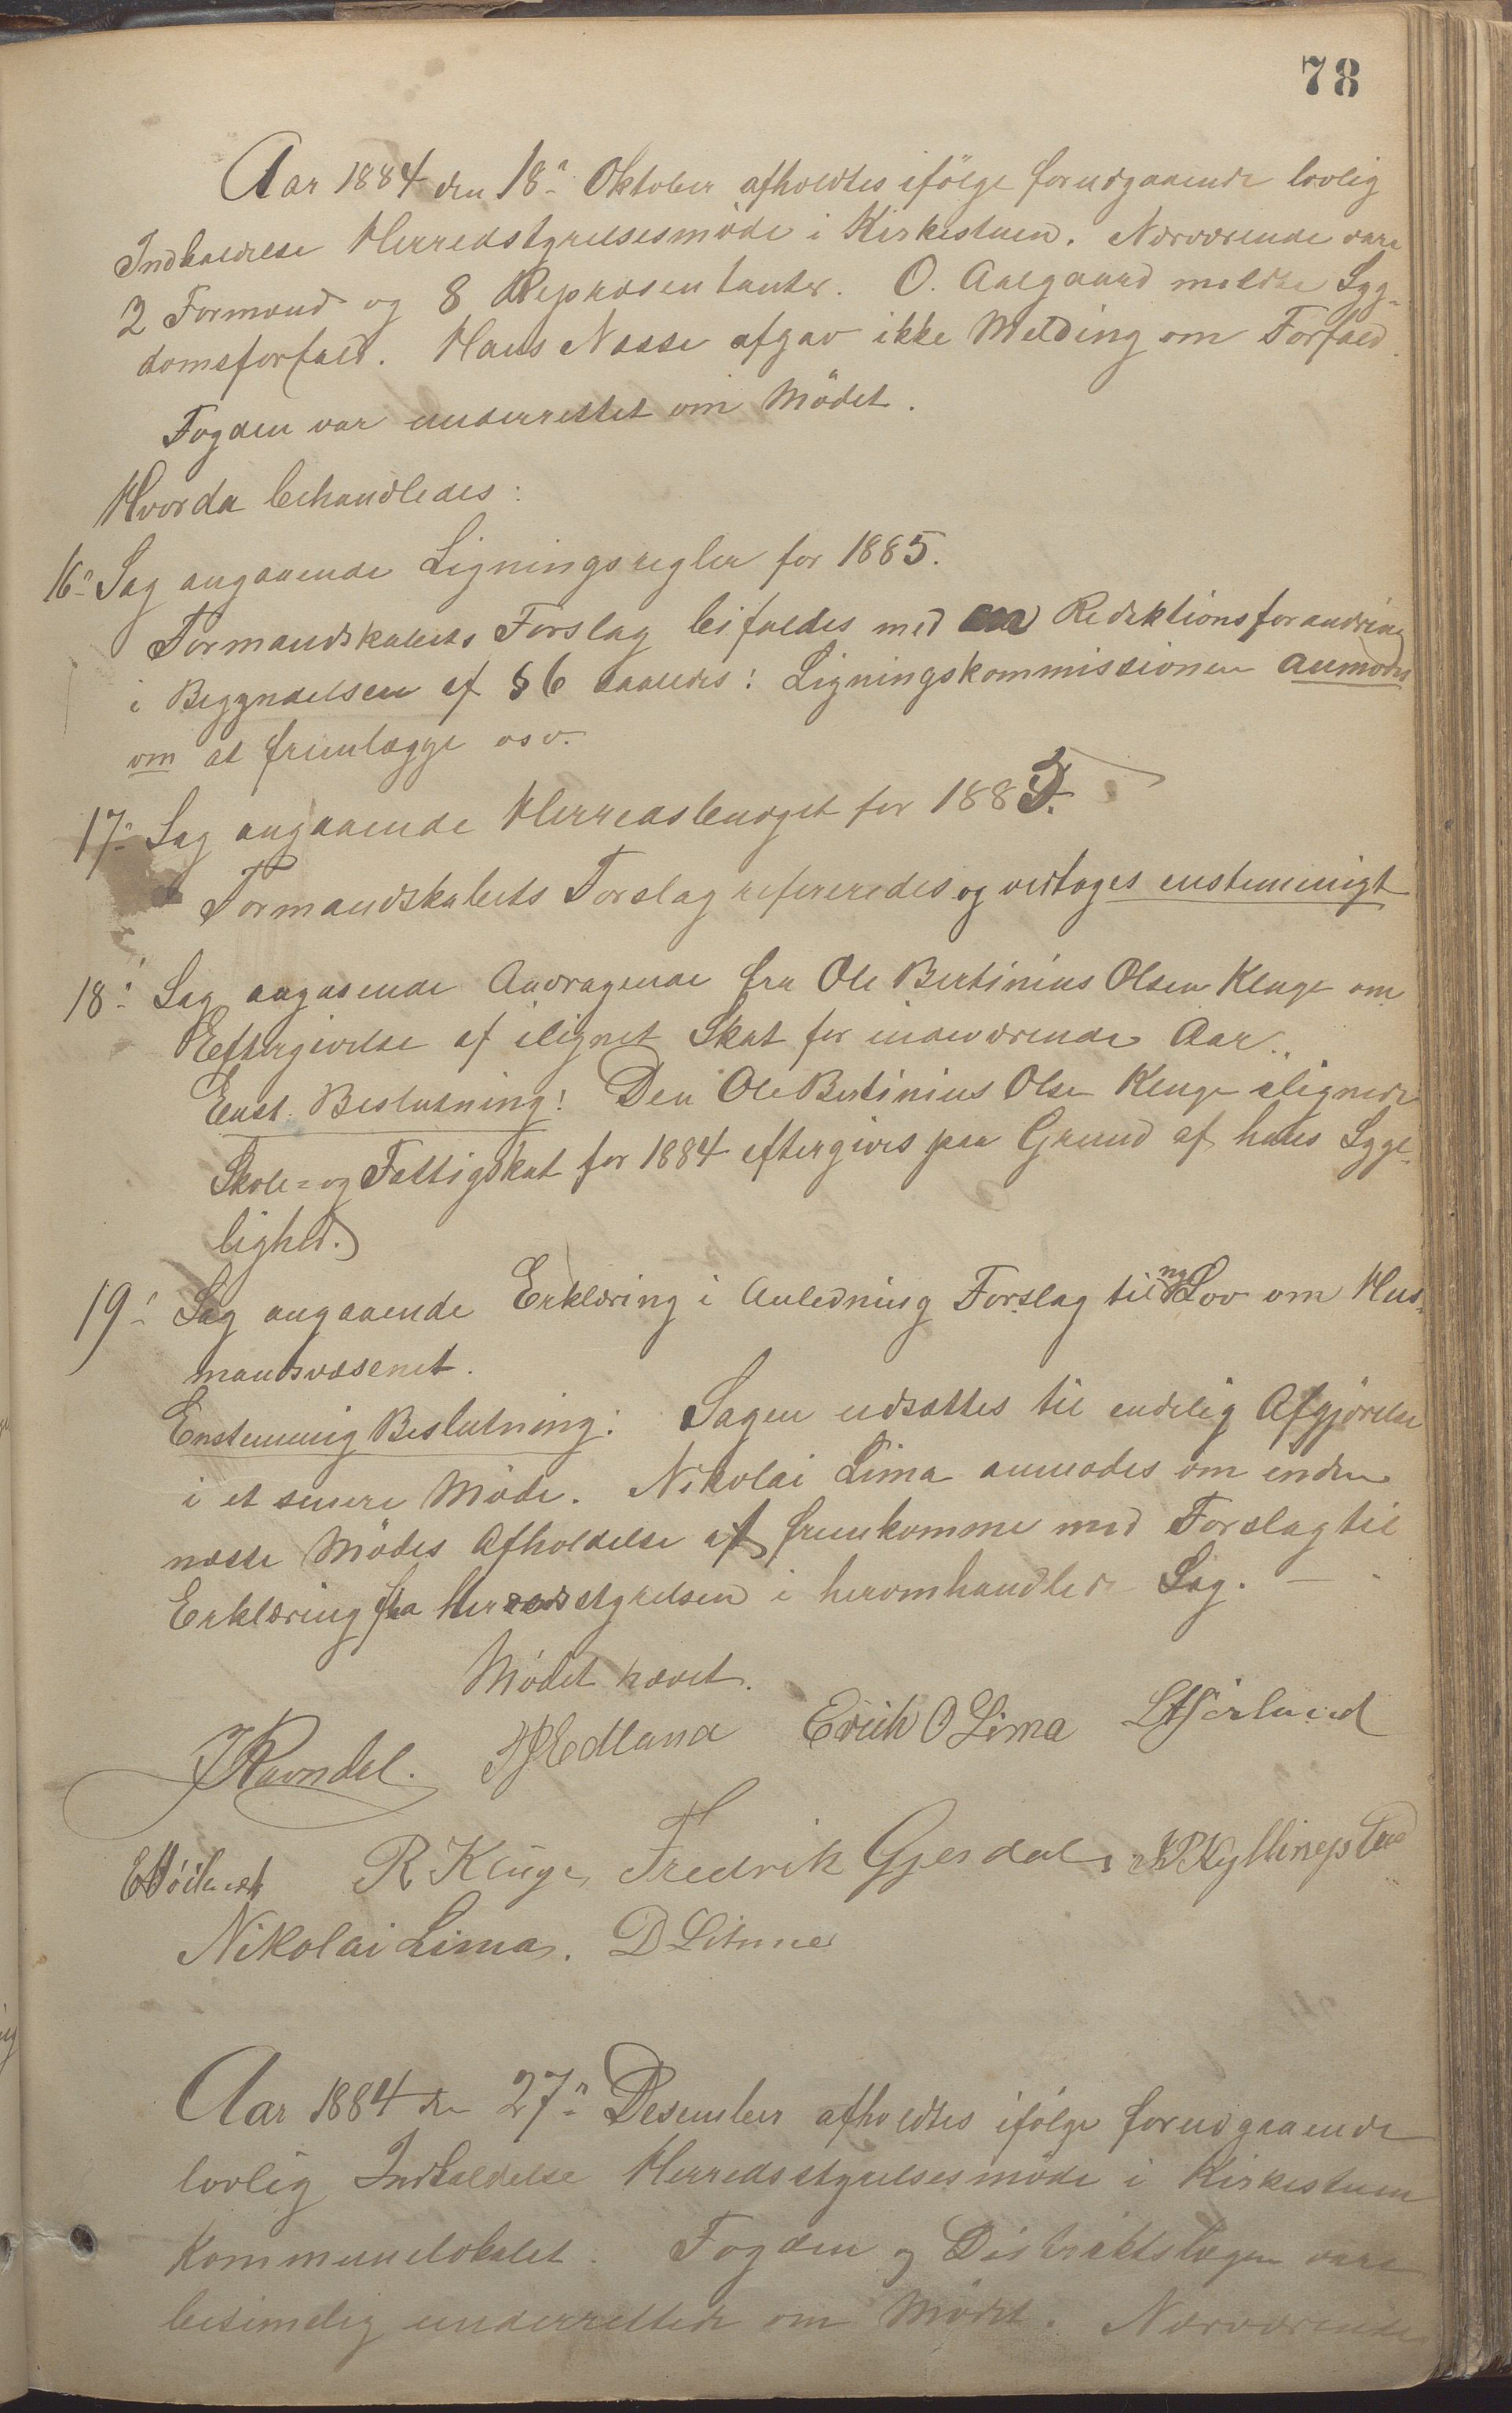 78
Aar 1884 den 18n Oktober afholdtes ifölge forudgaaende lovlig
Indkaldelse Herredstyrelsesmöde i Kirkestuen. Nærværende vare
2 Formænd og 8 Repræsentanter. O. Aalgaard meldte Syg-
domsforfald. Hans Næsse afgav ikke Melding om Forfald.
Fogden var underrettet om Mödet.
Hvorda behandledes:
16n Sag angaaende Ligningsregler for 1885.
Formandskabets Forslag bifaldes med en Redaktionsforandring
i Begyndelsen af § 6 saaledes: Ligningskommissionen anmodes
om at fremlægge osv.
17n Sag angaaende Herredsbudget for 1885.
Formandskabets Forslag refereredes og vedtoges enstemmigt
18n Sag angaaende Andragende fra Ole Bertinius Olsen Kluge om
Eftergivelse af ilignet Skat for indeværende Aar.
Enst. Beslutning: Den Ole Bertinius Olsen Kluge ilignede
Skole- og Fattigskat for 1884 eftergives paa Grund af hans Syge-
lighed.
19n Sag angaaende Erklæring i Anledning Forslag til ny Lov om Hus-
mandsvæsenet.
Enstemmig Beslutning: Sagen udsættes til endelig Afgjörelse
i et senere Möde. Nikolai Lima anmodes om inden
næste Mödes Afholdelse at fremkomme med Forslag til
Erklæring fra Herredsstyrelsen i heromhandlede Sag. —
Mödet hævet.
J Ravndal. Edland Erick O Lima
R Kluge, Fredrik Gjesdal, Kyllingstad
Nikolai Lima. D Limme
Aar 1884 den 27n Desember afholdtes ifölge forudgaaende
lovlig Indkaldelse Herredsstyrelsesmöde i Kirkestuen
Kommunelokalet. Fogden og Distriktslægen vare
betimelig underrettede om Mödet. Nærværende